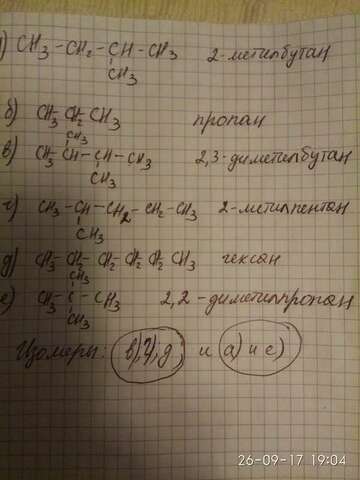 а) CH3 – CH2 – CH – CH3 2-метилбутан
CH3
б) CH3 CH2 CH3 пропан
CH3
в) CH3 – CH – CH – CH3 2,3-диметилбутан
CH3
г) CH3 – CH – CH2 – CH2 – CH3 2-метилпентан
CH3
д) CH3 – CH2 – CH2 – CH2 CH2 CH3 гексан
CH3
е) CH3 – C – CH3 2,2-диметилпропан
CH3
Изомеры: в), г), д) и а) и е)
26-09-17 19:04